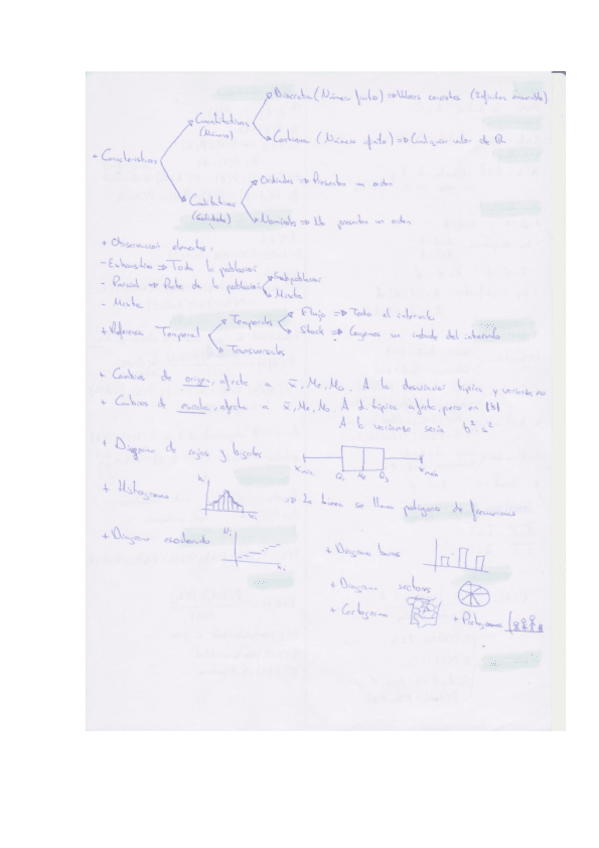 Discreta (Número finito) ⇒ Valores concretos (Infinitos numerable)
Cuantitativas
(Número)
Continua (Número finito) ⇒ Cualquier valor de R
+ Características
Ordinales ⇒ Presentan un orden
Cualitativas
(Cualidades)
Nominales ⇒ No presentan un orden
+ Observación elementos:
- Exhaustiva ⇒ Toda la población
- Parcial ⇒ Parte de la población
Subpoblación
Mixta
- Mixta
+ Referencia Temporal
Temporales
Flujo ⇒ Todo el intervalo
Stock ⇒ Cogemos un instante del intervalo
Transversales
+ Cambios de origen, afecta a x̄, Me, Mo. A la desviación típica y varianza no
+ Cambios de escala, afecta a x̄, Me, Mo. A d. típica afecta, pero en |b|
A la varianza sería b²·s²
+ Diagrama de cajas y bigotes
Xmin Q₁ Me Q₃ Xmax
+ Histograma
⇒ La línea se llama polígono de frecuencias
+ Diagrama escalonado
+ Diagrama barras
+ Diagrama sectores
+ Cartograma
+ Pictograma